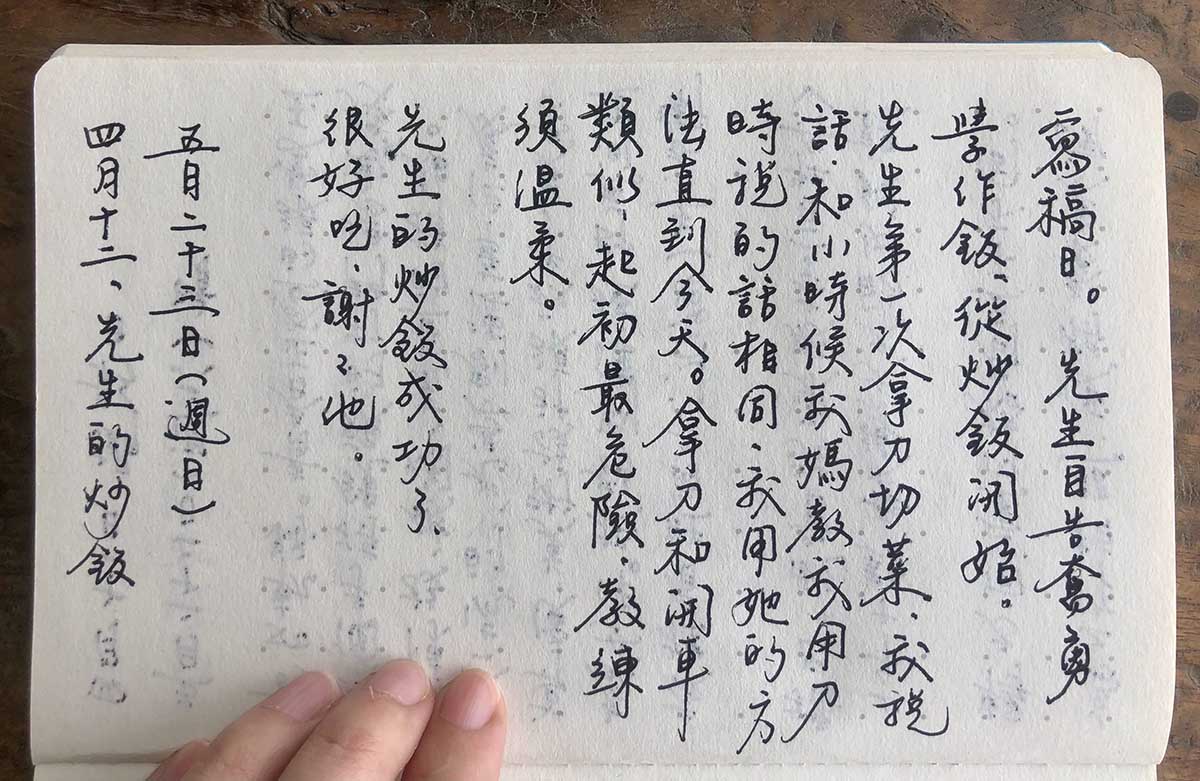 寫稿日。先生自告奮勇
學作飯、從炒飯開始。
先生第一次拿刀切菜、我說
話、和小時候我媽教我用刀
時說的話相同、我用她的方
法直到今天。拿刀和開車
類似、起初最危險、教練
須溫柔。
先生的炒飯成功了、
很好吃、謝々他。
五月二十三日(週日)
四月十二、先生的炒飯